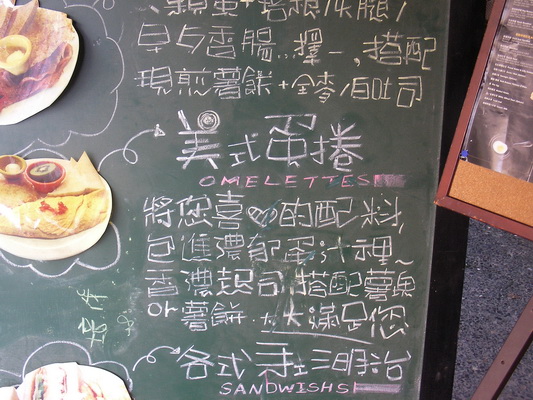 顆蛋+培根/火腿/
早午香腸...擇一,搭配
現煎薯餅+全麥/白吐司
美式蛋捲
OMELETTES
將您喜♥的配料,
包進濃郁蛋汁裡~
香濃起司,搭配薯塊
or薯餅..大大滿足您
各式手工三明治
SANDWISHS